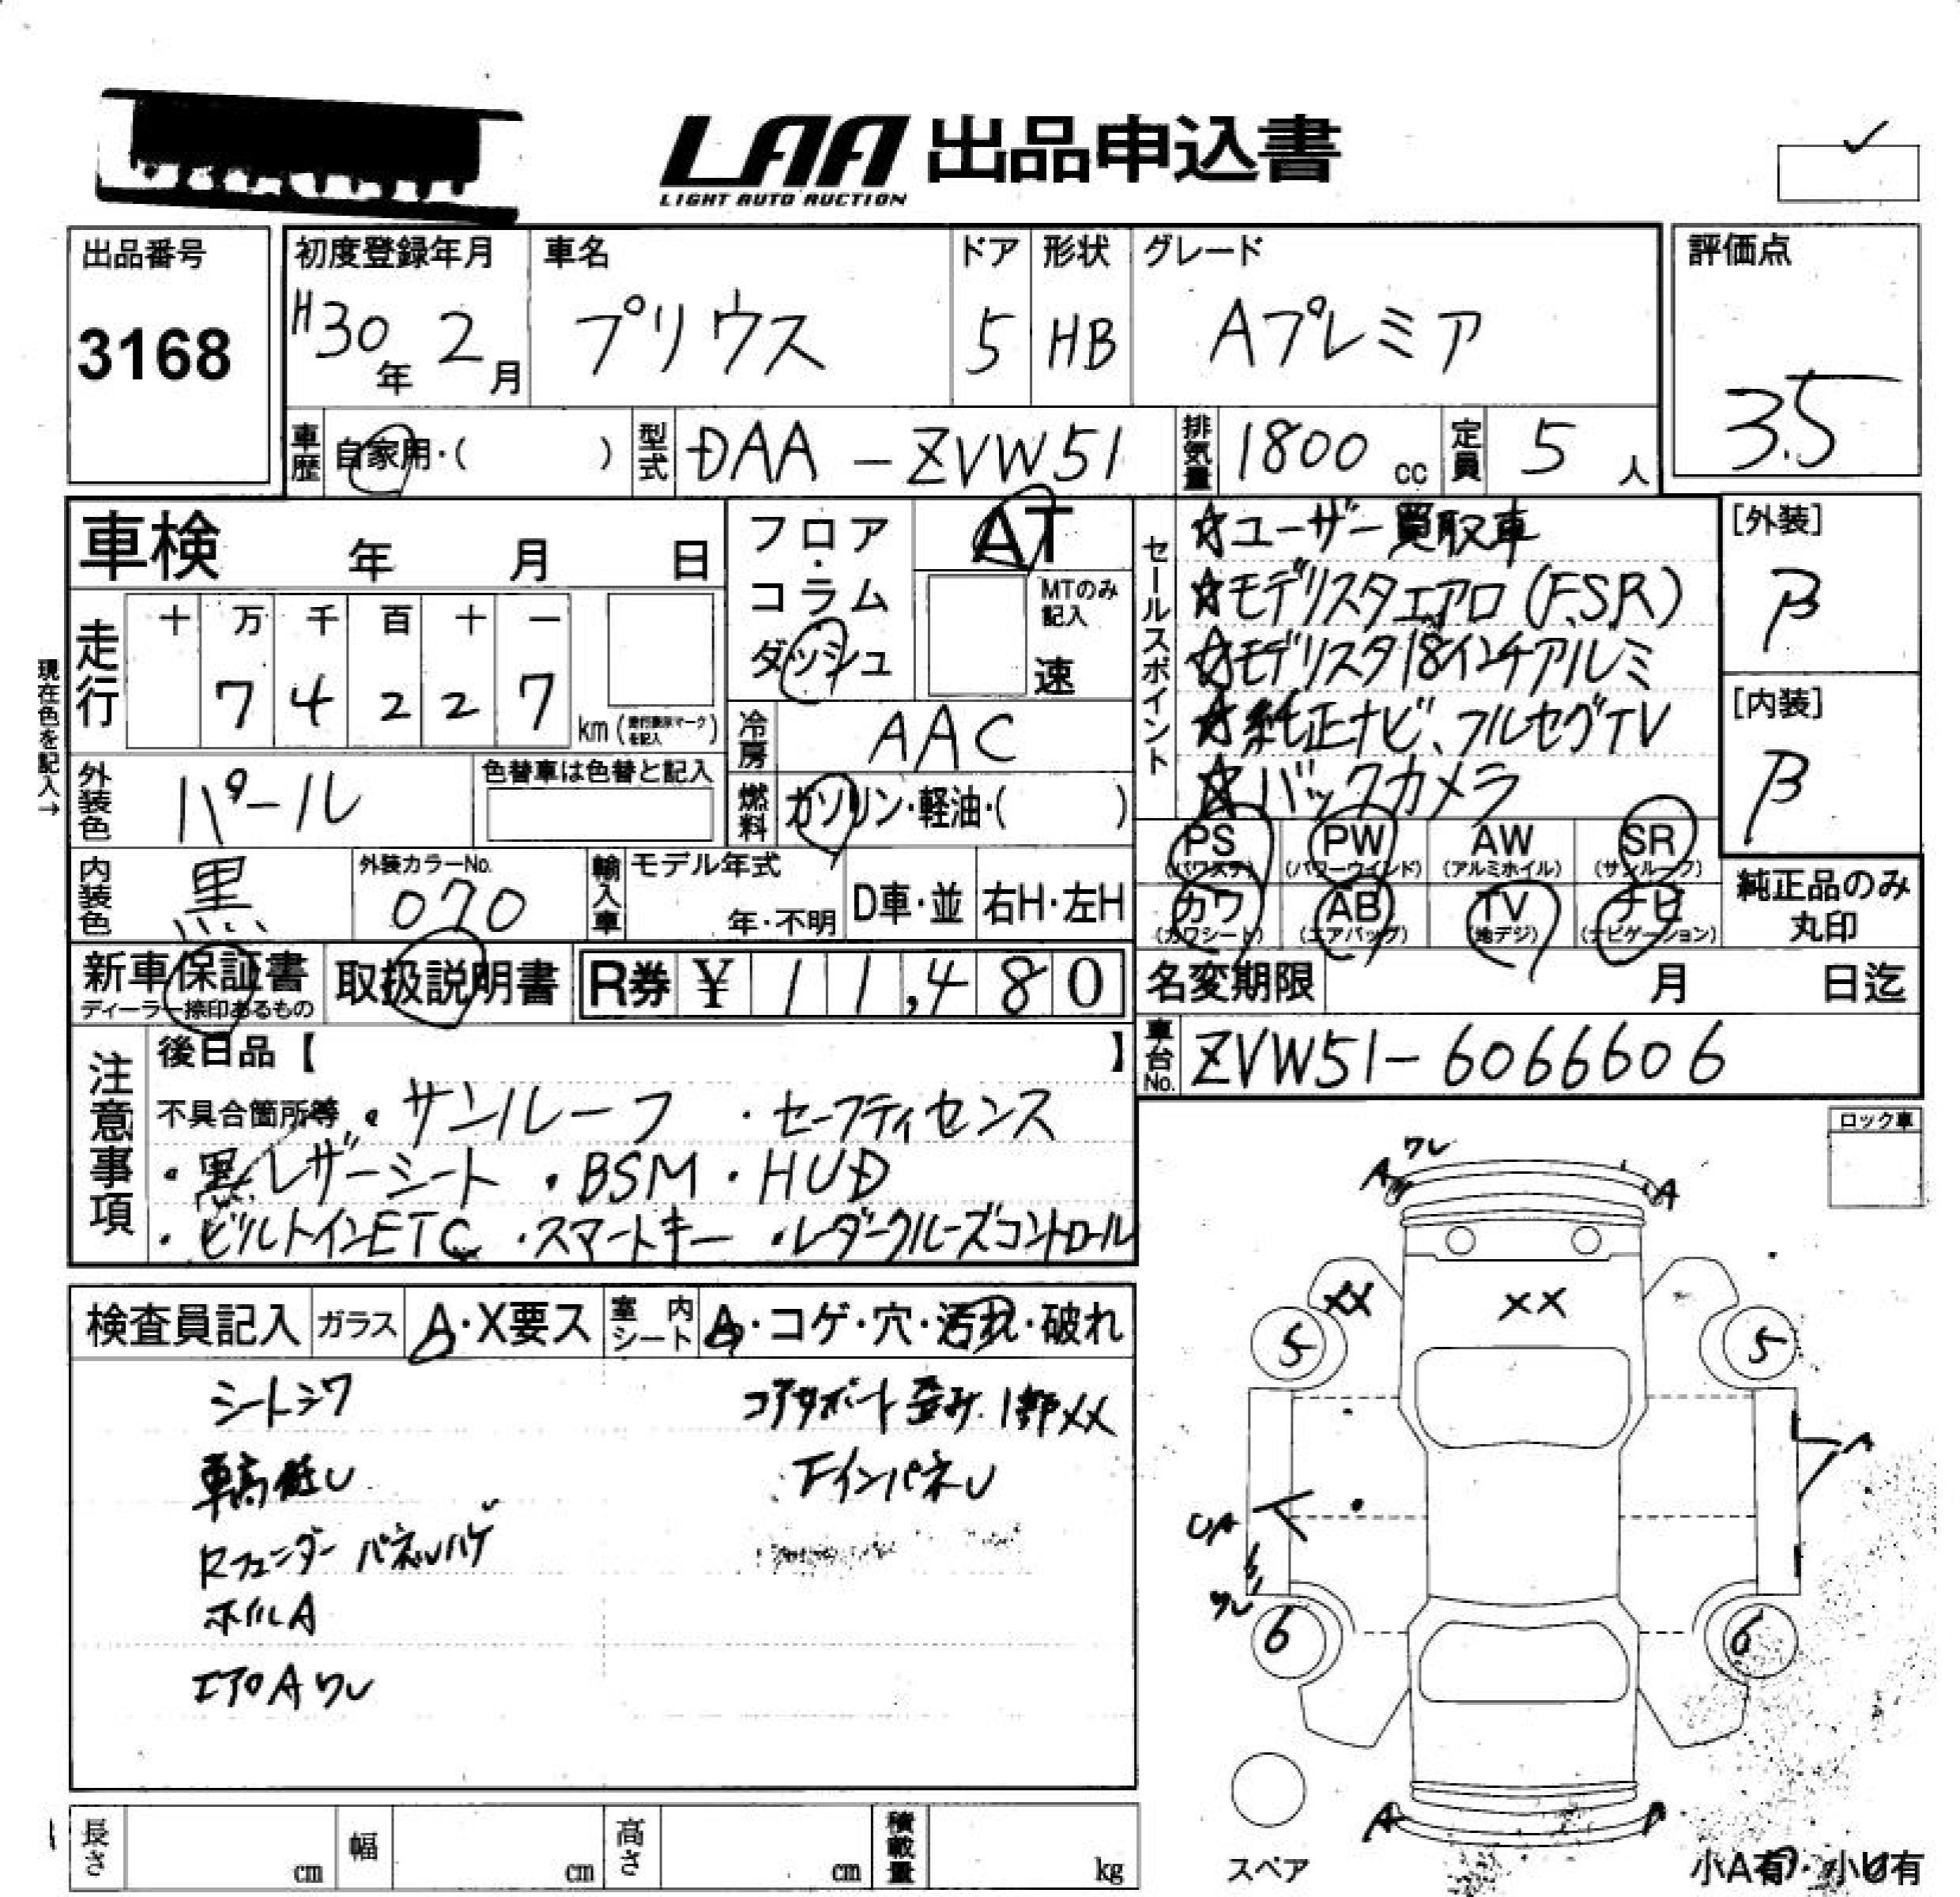 LAA 出品申込書
LIGHT AUTO AUCTION
出品番号
3168
初度登録年月
H30年 2月
車名
プリウス
ドア
5
形状
HB
グレード
Aプレミア
評価点
3.5
車歴 自家用・( )
型式 DAA-ZVW51
排気量 1800 cc
定員 5 人
車検 年 月 日
フロア・コラム ダッシュ
AT
MTのみ記入
速
走行
十 万 千 百 十 一
7 4 2 2 7
km (走行表示マークを記入)
現在色を記入→
冷房 AAC
外装色 パール
色替車は色替と記入
燃料 ガソリン・軽油・( )
内装色 黒
外装カラーNo.
070
輸入車
モデル年式
年・不明
D車・並
右H・左H
セールスポイント
☆ユーザー買取車
☆モデリスタエアロ(F.S.R)
☆モデリスタ18インチアルミ
☆純正ナビ、フルセグTV
☆バックカメラ
[外装]
β
[内装]
β
PS (パワステ)
PW (パワーウインド)
AW (アルミホイル)
SR (サンルーフ)
カワ (カワシート)
AB (エアバッグ)
TV (地デジ)
ナビ (ナビゲーション)
純正品のみ丸印
新車保証書
ディーラー捺印あるもの
取扱説明書
R券 ¥ 11,480
名変期限 月 日迄
車台No. ZVW51-6066606
注意事項
後日品【 】
不具合箇所等・サンルーフ ・セーフティセンス
・黒レザーシート ・BSM ・HUD
・ビルトインETC ・スマートキー ・レーダークルーズコントロール
検査員記入
ガラス A・X要ス
室内シート A・コゲ・穴・汚れ・破れ
シートシワ
車高低い
Rフェンダー パネルハゲ
ホイルA
エアロAワレ
コアサポート歪み.1部XX
Fインパネル
ロック車
ワレ
A
A
XX
XX
5
5
A
UA
ワレ
6
6
A
スペア
小A有・小U有
長さ cm
幅 cm
高さ cm
積載量 kg